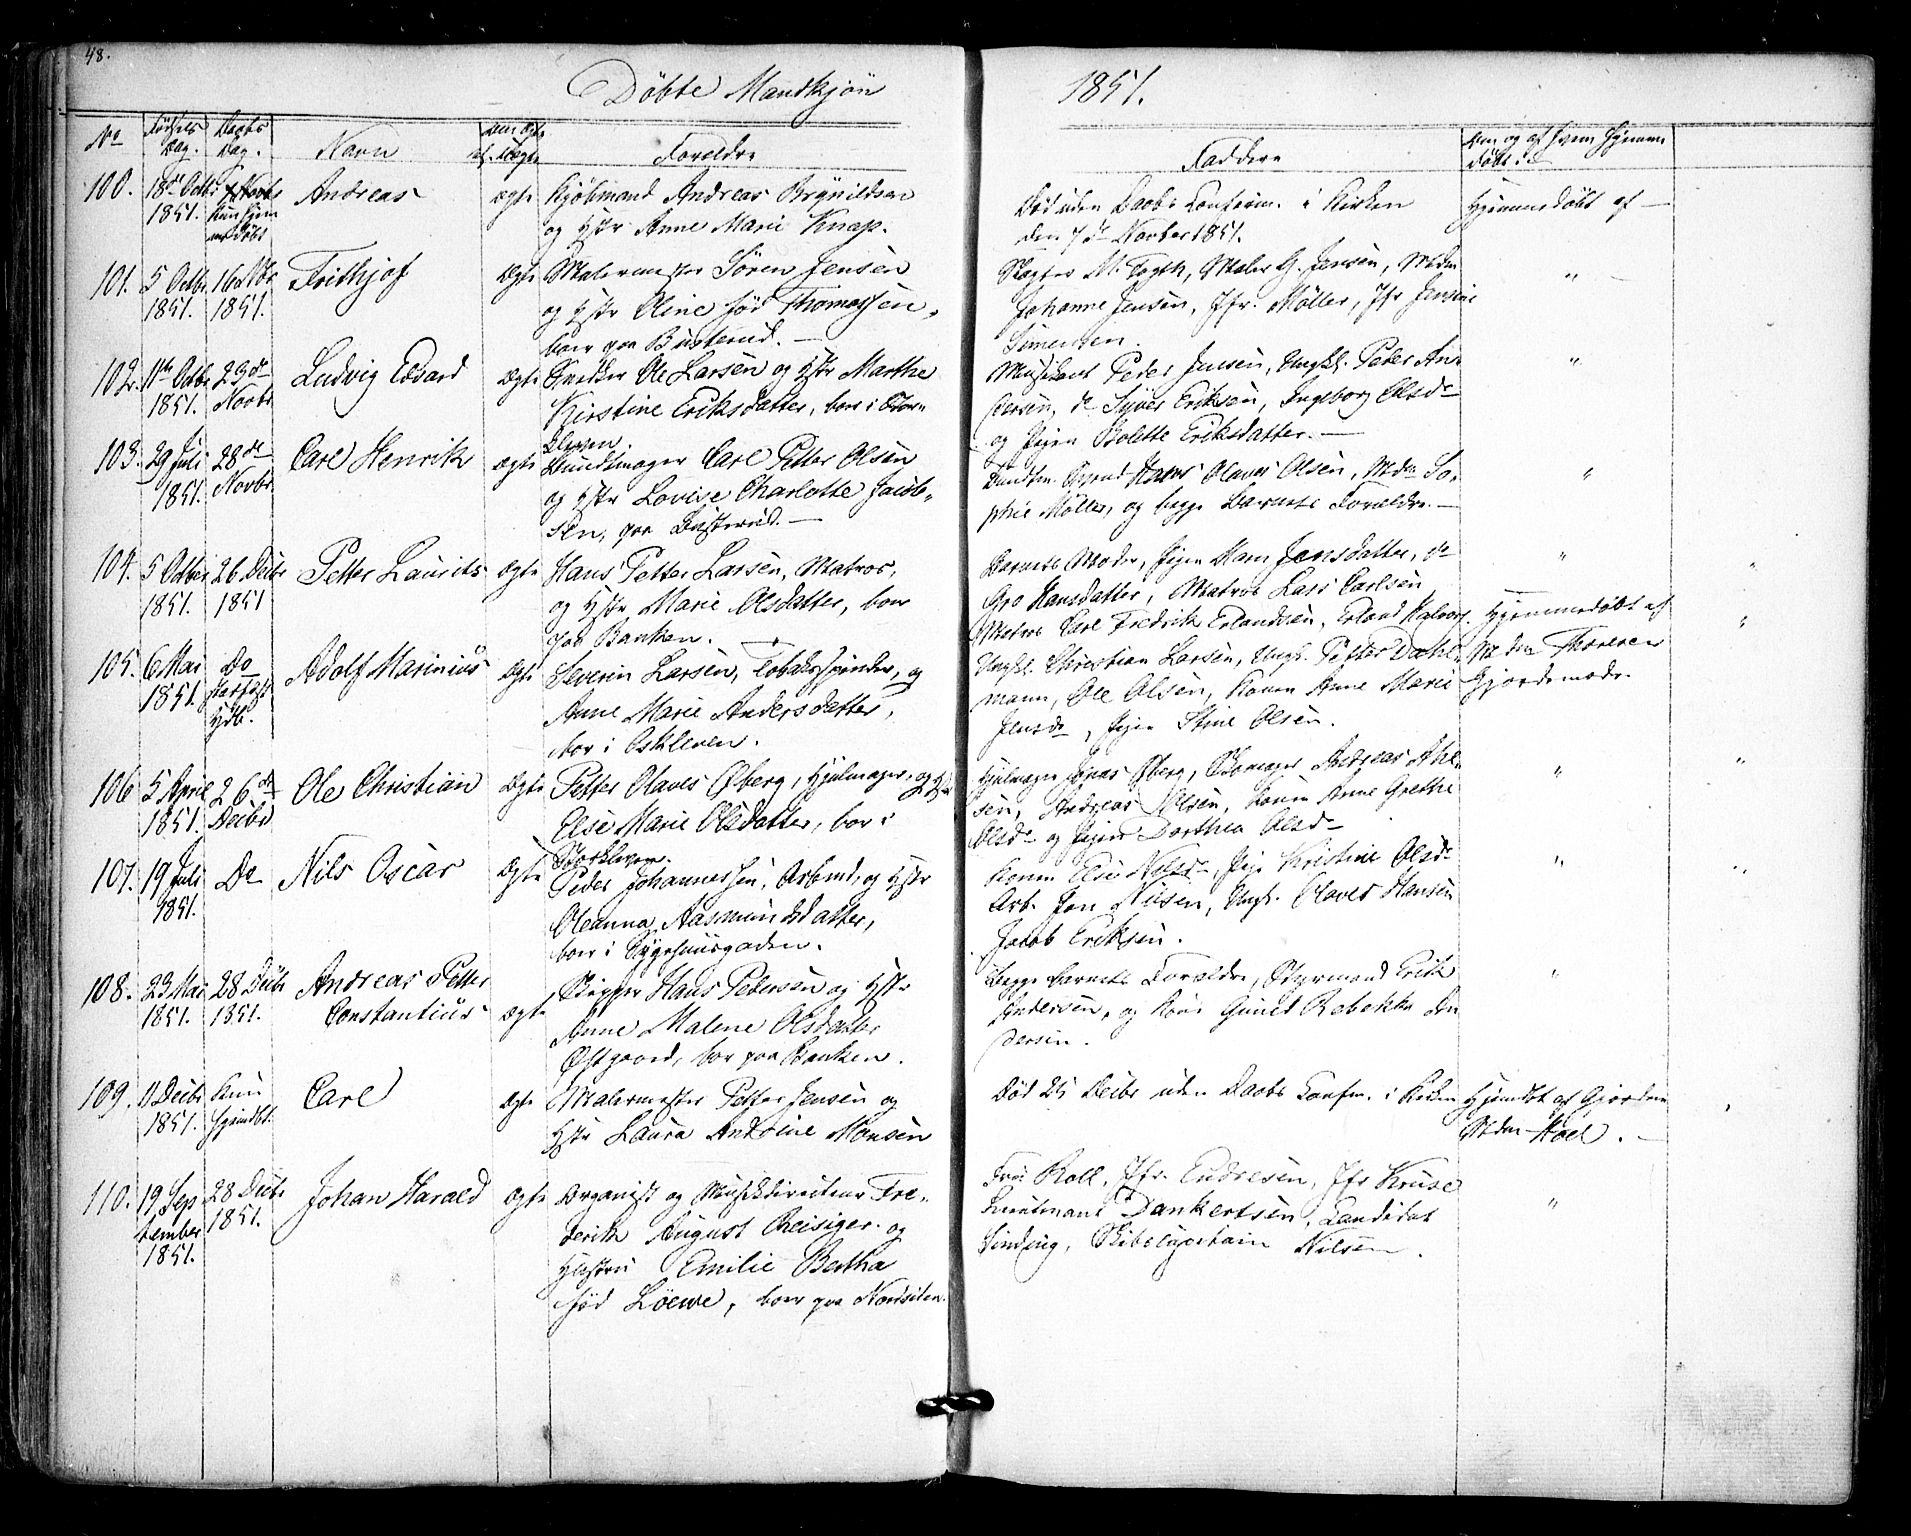 48.
Döbte Mandkjön 1851.
No
Fødsels Dag.
Daabs Dag.
Navn
Om Ægte el. Uægte
Forældre
Faddere
Om og af hvem Hjemmedöbt
100. 18de Octbr 1851. Kun hjemmedöbt
Andreas
Ægte
Kjöbmand Andreas Brynildsen
og Hstr Anne Marie Knap.
Död uden Daabs Confirm. i Kirken
den 7de Novber 1851.
Hjemmedöbt af —
101. 5 Octbr 1851. 16 Nbr 1851.
Frithjof
Ægte
Malermester Sören Jensen
og Hstr Oline föd Thomassen,
boer paa Busterud. —
M. Fogth, Maler G. Jensen, Mdm
Johanne Jensen, Jfr. Möller, Jfr Jensine
Simensen.
"
102. 11te Octbr 1851. 23de Novbr
Ludvig Edvard
Ægte
Snedker Ole Larsen og Hstr Marthe
Kirstine Eriksdatter, boer i
Musikant Peder Jensen, Ungk. Peder An-
dersen, do Syver Eriksen, Ingeborg Olsdr
og Pigen Bolette Eriksdatter. —
"
103. 29 Juli 1851. 28de Novbr
Carl Henrik
Ægte
Bundtmager Carl Petter Olsen
og Hstr Lovise Charlotte Jacob-
sen, paa Busterud. —
Bundtm. Svend Hans Olaves Olsen, Mdm So-
phie Möller, og begge Barnets Forældre. —
"
104. 5 Octber 1851. 26 Decbr 1851
Petter Laurits
Ægte
Hans Petter Larsen, Matros,
og Hstr Marie Olsdatter, boer
paa Banken. —
Barnets Moder, Pigen Karen Jensdatter, do
Gro Hansdatter, Matros Lars Carlsen
Matros Carl Fredrik Erlandsen, Erland Halvors.
"
105. 6 Mai 1851. Do Hjdb.
Adolf Marinius
Ægte
Severin Larsen, Tobakspinder, og
Anne Marie Andersdatter,
boer i Oskleven.
Ungk. Christian Larsen, Ungk. Petter Dahl-
mann, Ole Olsen, Konen Anne Marie
Jensdr, Pigen Stine Olsen.
Hjemmedöbt af
Mdm Thoresen
Gjordemoder.
106 5 April 1851. 26de Decbr
Ole Christian
Ægte
Petter Olaves Öberg, Hjulmager, og Hstr
Else Marie Olsdatter, boer i
Hjulmager Jonas Öberg, Skomager Andreas Ahl-
sen, Andreas Olsen, Konen Anne Grethe
Olsdr og Pigen Dorthea Olsdr
"
107. 19 Juli 1851. Do
Nils Oscar
Ægte
Peder Johannessen, Arbmd, og Hstr
Oleanna Aasmundsdatter,
boer i Sygehuusgaden.
Konen Else Nilsdr, Pige Kristine Olsdr
Arb. Jon Nilsen, Ungk. Olaves Hansen
Jacob Eriksen.
"
108. 23 Mai 1851. 28 Decbr 1851.
Andreas Petter
Constantius
Ægte
Skipper Hans Pedersen og Hstr
Anne Malene Olsdatter
Östgaard, boer paa Banken.
Begge Barnets Forældre, Styrmand Erik
Andersen, og Kone Gunild Rebekka An-
dersen.
"
109. 11 Decbr 1851. Kun hjemdbt.
Carl
Ægte
Malermester Petter Jensen og
Hstr Laura Andrine Monsen
Död 25 Decbr uden Daabs Confm. i Kirken
Hjemdbt af Gjordem
Mdm Hoel. —
110. 19 September 1851. 28 Decbr 1851.
Johan Harald
Ægte
Organist og Musikdirecteur Fre-
derik August Reisiger og
Hustru Emilie Bertha
föd Löewe, boer paa Nordsiden.
Fru Roll, Jfr. Endresen, Jfr Kruse
Lieutenant Dankertsen, Candidat
Sinding, Skibscapitain Nilsen.
"